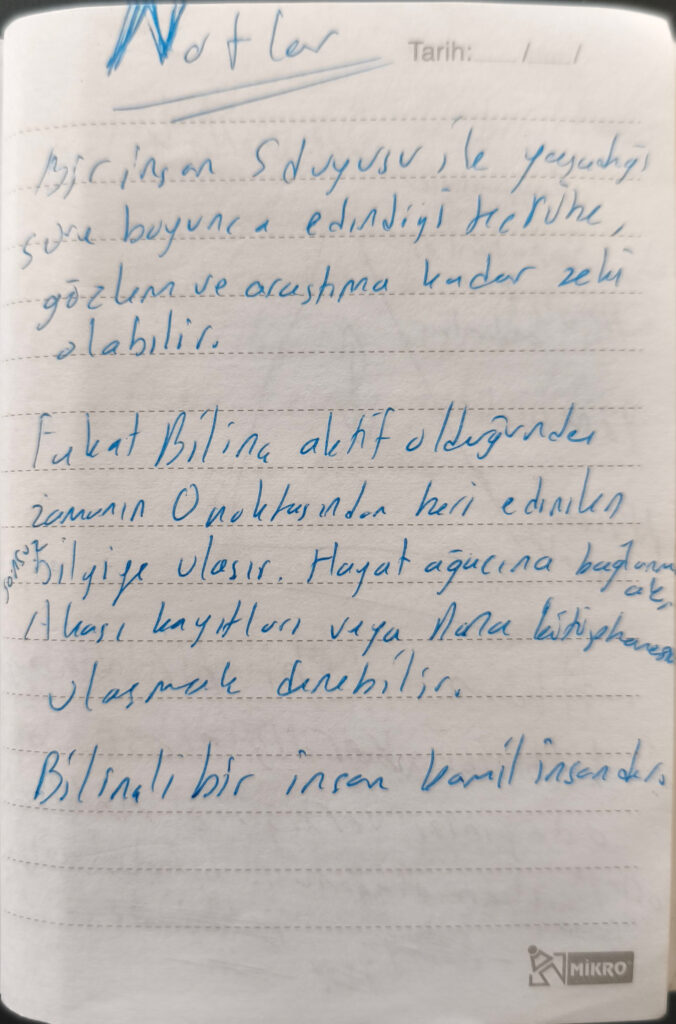 Notlar
Tarih: / /
Bir insan 5 duyusu ile yaşadığı
süre boyunca edindiği tecrübe,
gözlem ve araştırma kadar zeki
olabilir.
Fakat Bilinç aktif olduğundan
zamanın 0 noktasından beri edinilen
sonsuz bilgiye ulaşır. Hayat ağacına bağlanm
ak,
Akaşi kayıtları veya Nuna kütüphanesi
ulaşmak denebilir.
Bilinçli bir insan kamil insandır.
MİKRO